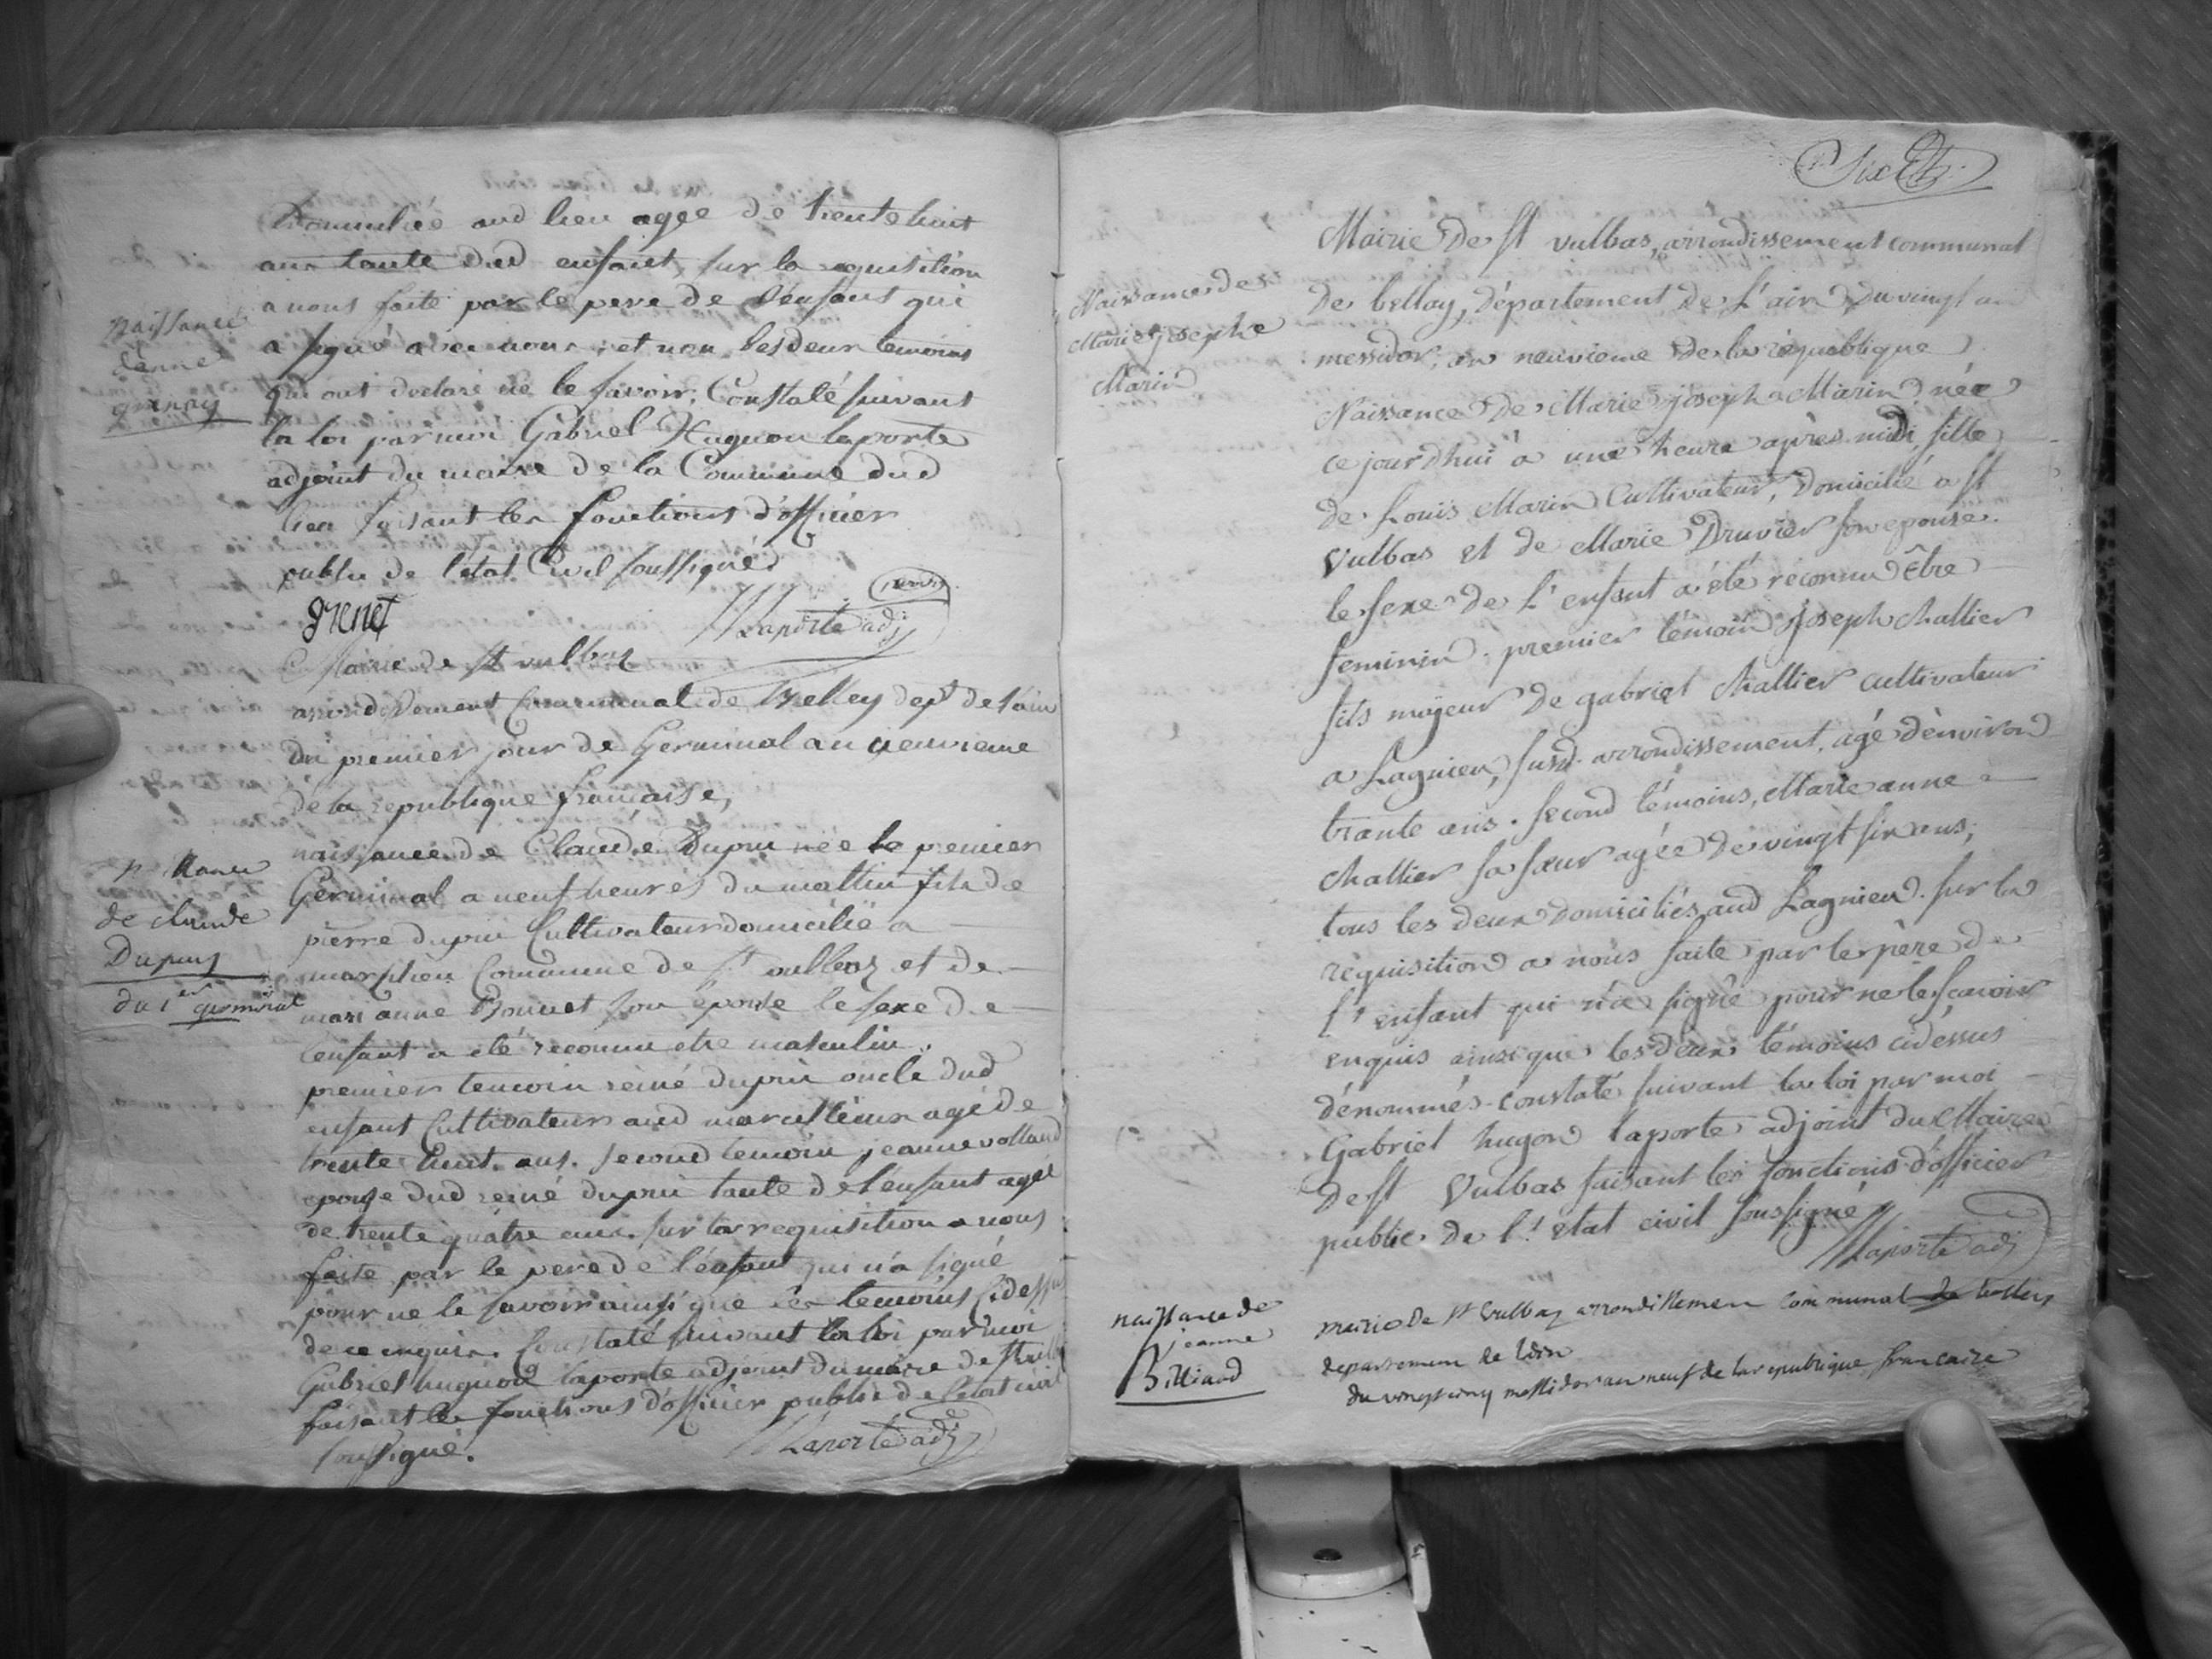 Domiciliée aud lieu agée de trente huit
ans tante dud enfant, sur la requisition
a nous faite par le pere de l'enfant qui
a signé avec nous, et non les deux temoins
qui ont declaré ne le savoir, Constaté suivant
la loi par moi Gabriel Huguon laporte
adjoint du maire de la Commune dud
lieu faisant les fonctions d'officier
public de l'état Civil soussigné
naissance
d'anne
grenet
Laporte adj
Mairie de St vulbas
arrondissement Communal de Belley dept de l'ain
du premier jour de Germinal an neuvieme
de la republique française,
naissance de Claude Dupui née le premier
Germinal a neuf heures du mattin fils de
pierre dupui Cultivateur domicilié a
Commune de St vulbas et de
mari anne Bonnet son épouse le sexe de
l'enfant a été reconnu etre masculin.
premier temoin dupui oncle dud
enfant Cultivateur aud agé de
trente huit ans. second temoin jeanne volland
epouse dud dupui tante de l'enfant agée
de trente quatre ans. sur la requisition a nous
faite par le pere de l'enfant qui n'a signé
pour ne le savoir ainsi que les temoins cidessus
de ce enquis. Constaté suivant la loi par moi
Gabriel huguon laporte adjoint du maire de St
faisant les fonctions d'officier public de l'etat civil
soussigné.
Laporte adj
naissance
de claude
Dupuy
du 1er germinal
Six
Mairie de St vulbas, arrondissement communal
de bellay, Département de L'ain du vingt
messidor, an neuvieme de la république
Naissance de Marie joseph Marin née
ce jourdhui à une heure après midi, fille
de Louis Marin Cultivateur, Domicilié a St
Vulbas et de Marie Druvier son epouse.
le sexe de L'enfant a été reconnu être
feminin. premier témoin Joseph challier
fils majeur de gabriel challier cultivateur
a Lagnieu, susd. arrondissement, agé d'environ
trante ans. second témoins, Marie anne
challier sa sœur agée de vingt six ans,
tous les deux Domiciliés aud Lagnieu. sur la
réquisition a nous faite par le père de
L'enfant qui n'a signé pour ne le scavoir
enquis ainsi que les deux témoins cidéssus
dénommés. constaté suivant la loi par moi
Gabriel hugon laporte adjoint du Maire
de St Vulbas faisant les fonctions d'officier
public de l'etat civil soussigné
Laporte adj
Naissance de
Marie joseph
Marin
naissance de
jeanne
Billiard
mairie De St Vulbas arrondissemen communal de belley
departemen de Lain
du vingt cinq messidor an neuf de la republique francaise